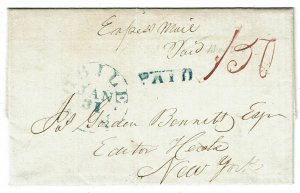 Express Mail
Paid
150
BILE
JAN
31
PAID
Js Gordon Bennett Esqr
Editor Herald
New York